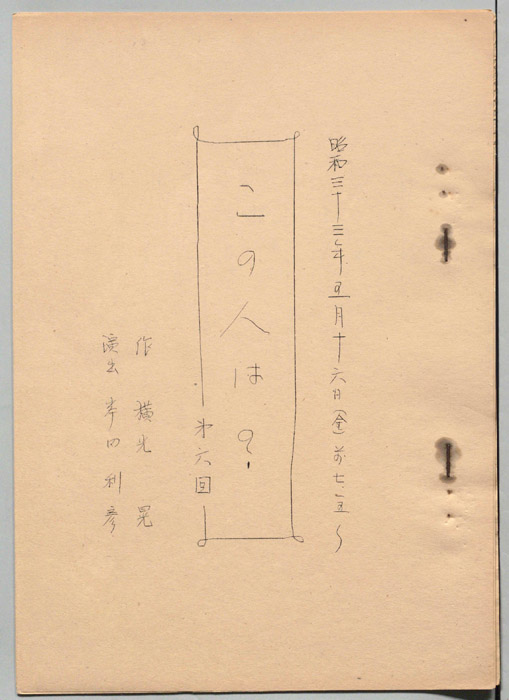 昭和三十三年五月十六日(金)前七、五〜
この人は?
第六回
作 横光 晃
演出 岸田利彦